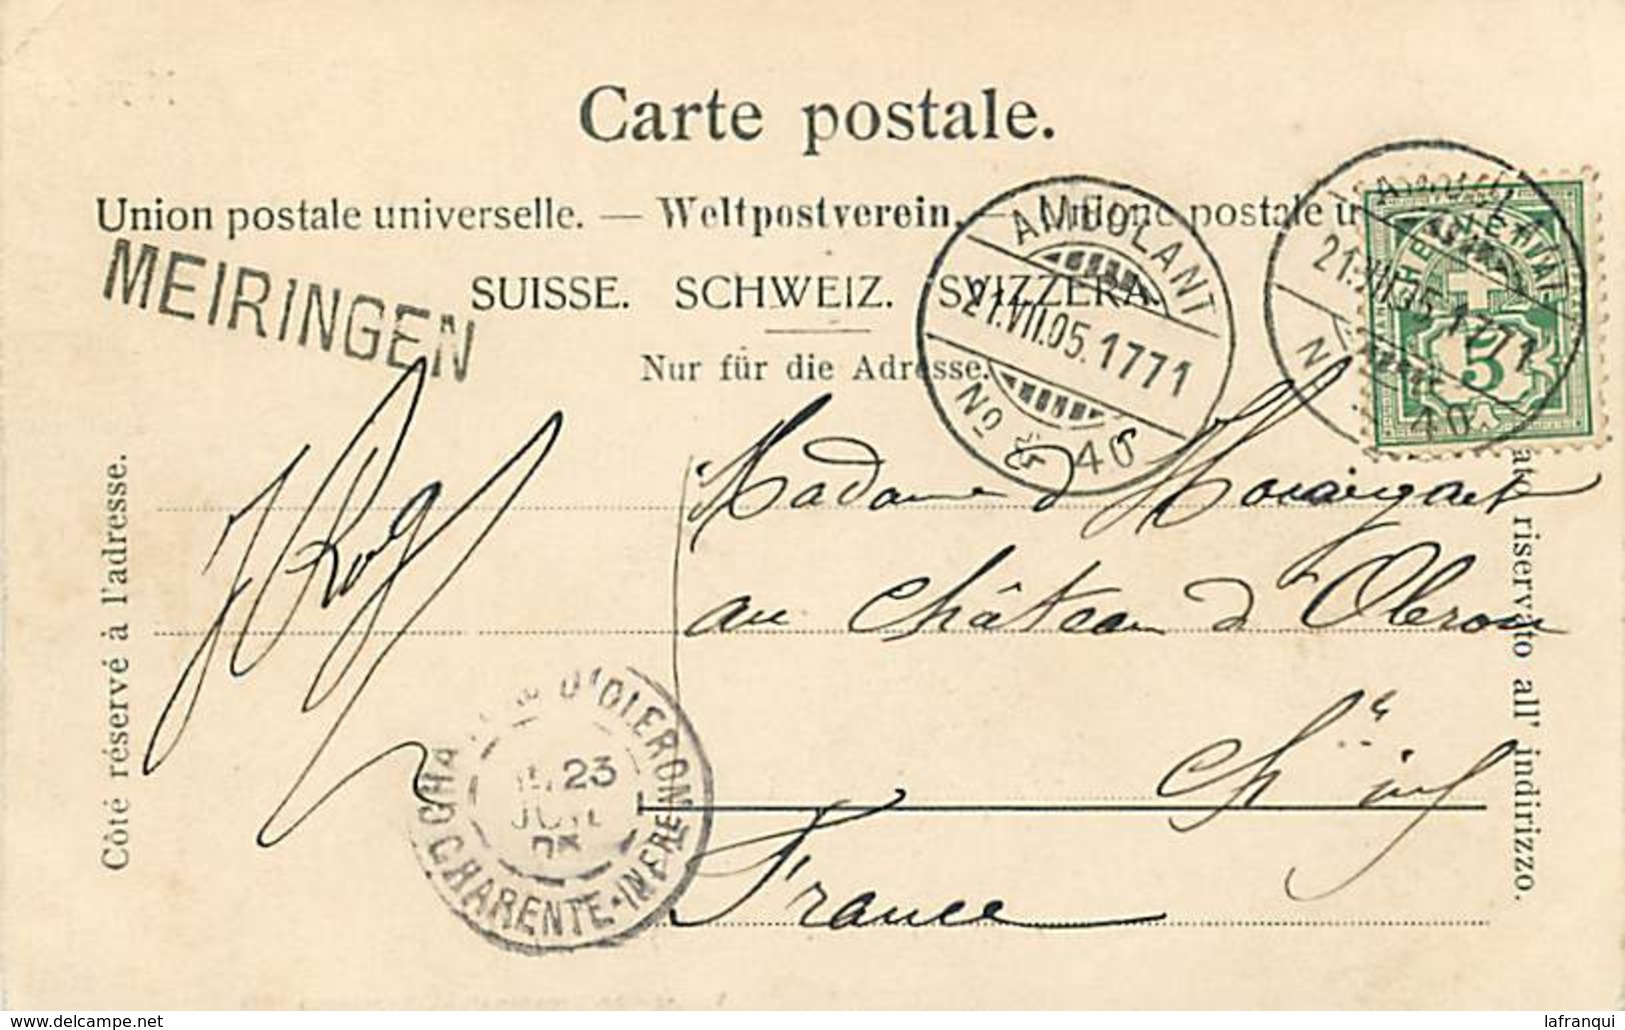 Carte postale.
Union postale universelle. — Weltpostverein. — Unione postale u
SUISSE. SCHWEIZ. SVIZZERA.
Nur für die Adresse.
MEIRINGEN
AMBULANT
21.VII.05.1771
No 40
21.VII.05.1771
N 40.
5
Côté réservé à l'adresse.
Madame
au Château d'Oleron
Chte inf
France
D'OLERON
23
JUIL
05
CHARENTE-INFRE
lato riservato all' indirizzo.
delcampe.net
lafranqui